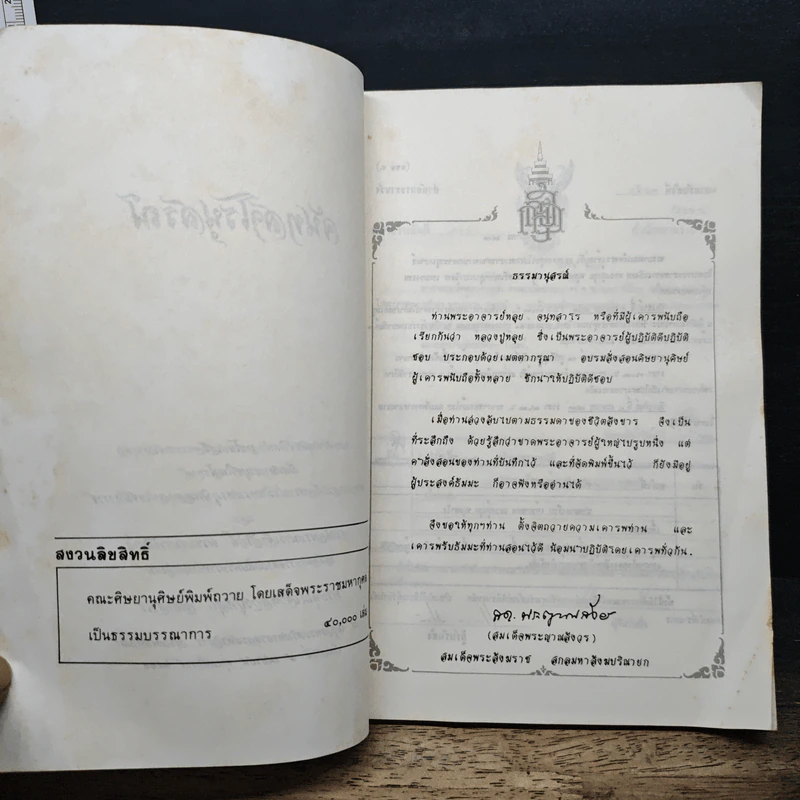 สงวนลิขสิทธิ์
คณะศิษยานุศิษย์พิมพ์ถวาย โดยเสด็จพระราชมหากุศล
๔๐,๐๐๐ เล่ม
เป็นธรรมบรรณาการ
ธรรมานุสรณ์
ท่านพระอาจารย์หลุย จนฺทสาโร หรือที่มีผู้เคารพนับถือ
เรียกกันว่า หลวงปู่หลุย ซึ่งเป็นพระอาจารย์ผู้ปฏิบัติดีปฏิบัติ
ชอบ ประกอบด้วยเมตตากรุณา อบรมสั่งสอนศิษยานุศิษย์
ผู้เคารพนับถือทั้งหลาย ชักนำให้ปฏิบัติดีชอบ
เมื่อท่านล่วงลับไปตามธรรมดาของชีวิตสังขาร จึงเป็น
ที่ระลึกถึง ด้วยรู้สึกว่าขาดพระอาจารย์ผู้ใหญ่ไปรูปหนึ่ง แต่
คำสั่งสอนของท่านที่บันทึกไว้ และที่จัดพิมพ์ขึ้นไว้ ก็ยังมีอยู่
ผู้ประสงค์ธัมมะ ก็อาจฟังหรืออ่านได้
จึงขอให้ทุกๆท่าน ตั้งจิตถวายความเคารพท่าน และ
เคารพรับธัมมะที่ท่านสอนไว้ดี น้อมนำปฏิบัติโดยเคารพทั่วกัน.
(สมเด็จพระญาณสังวร)
สมเด็จพระสังฆราช สกลมหาสังฆปริณายก